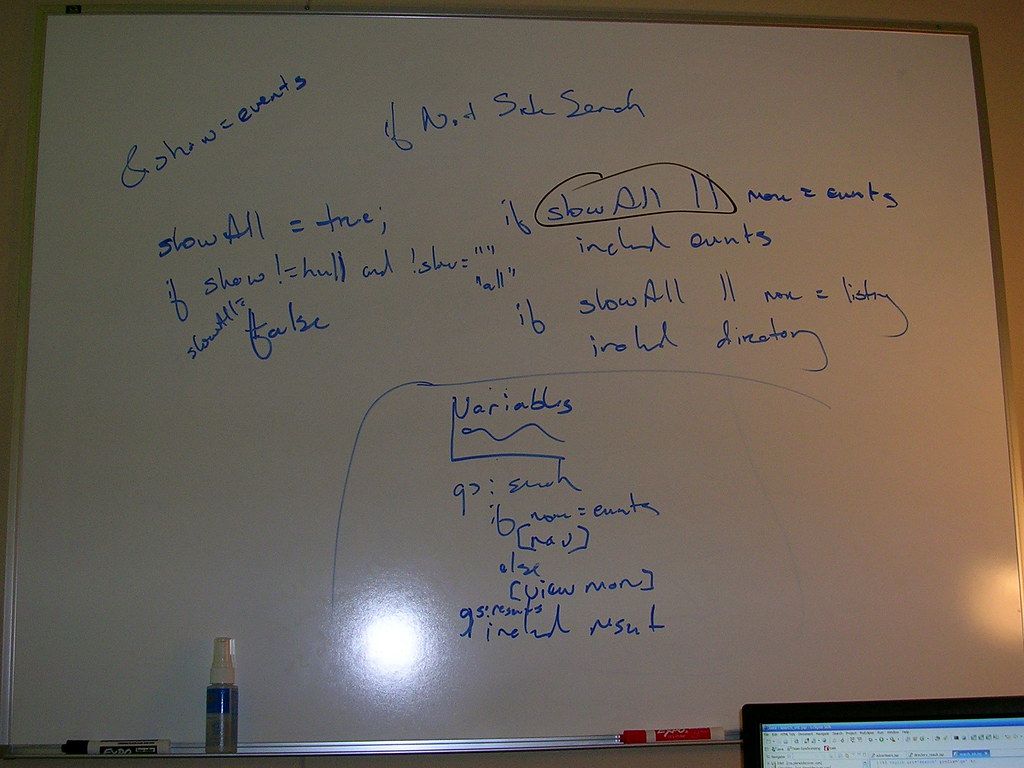 &show=events
if Not Site Search
showAll = true;
if show != null and !show= ""
"all"
showAll=
false
if showAll || more = events
includ events
if showAll || more = listing
includ directory
Variables
gs: search
if more = events
[nav]
else
[view more]
gs:results
includ result
EXPO
EXPO